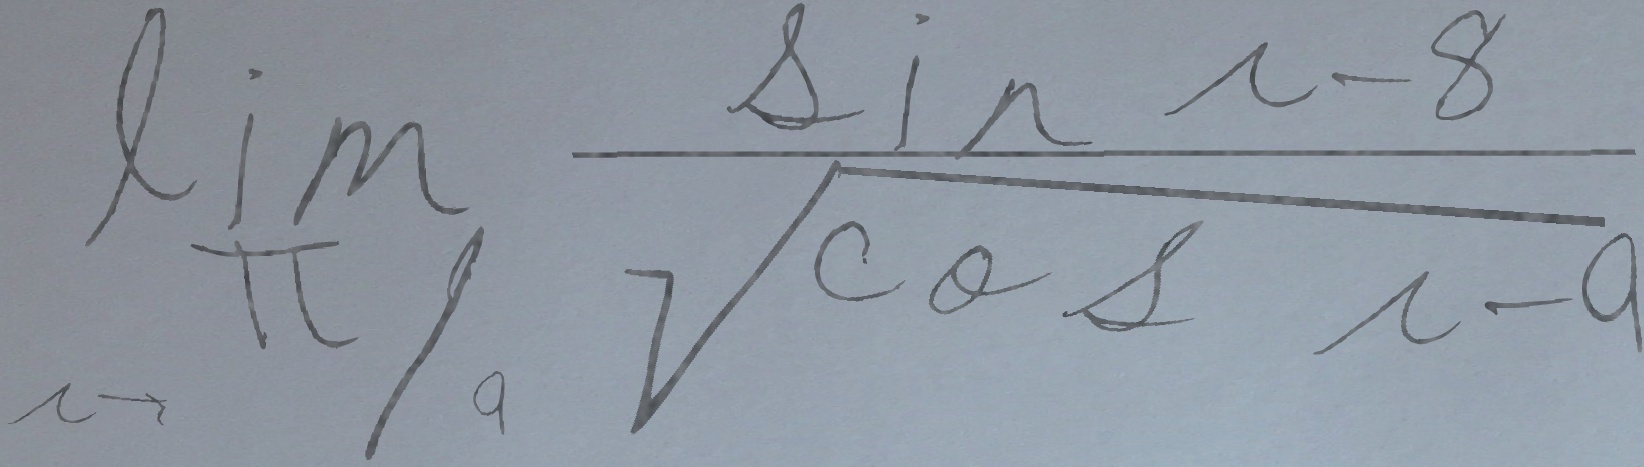 \lim_{r \to \pi/9} \frac{\sin r - 8}{\sqrt{\cos r - 9}}